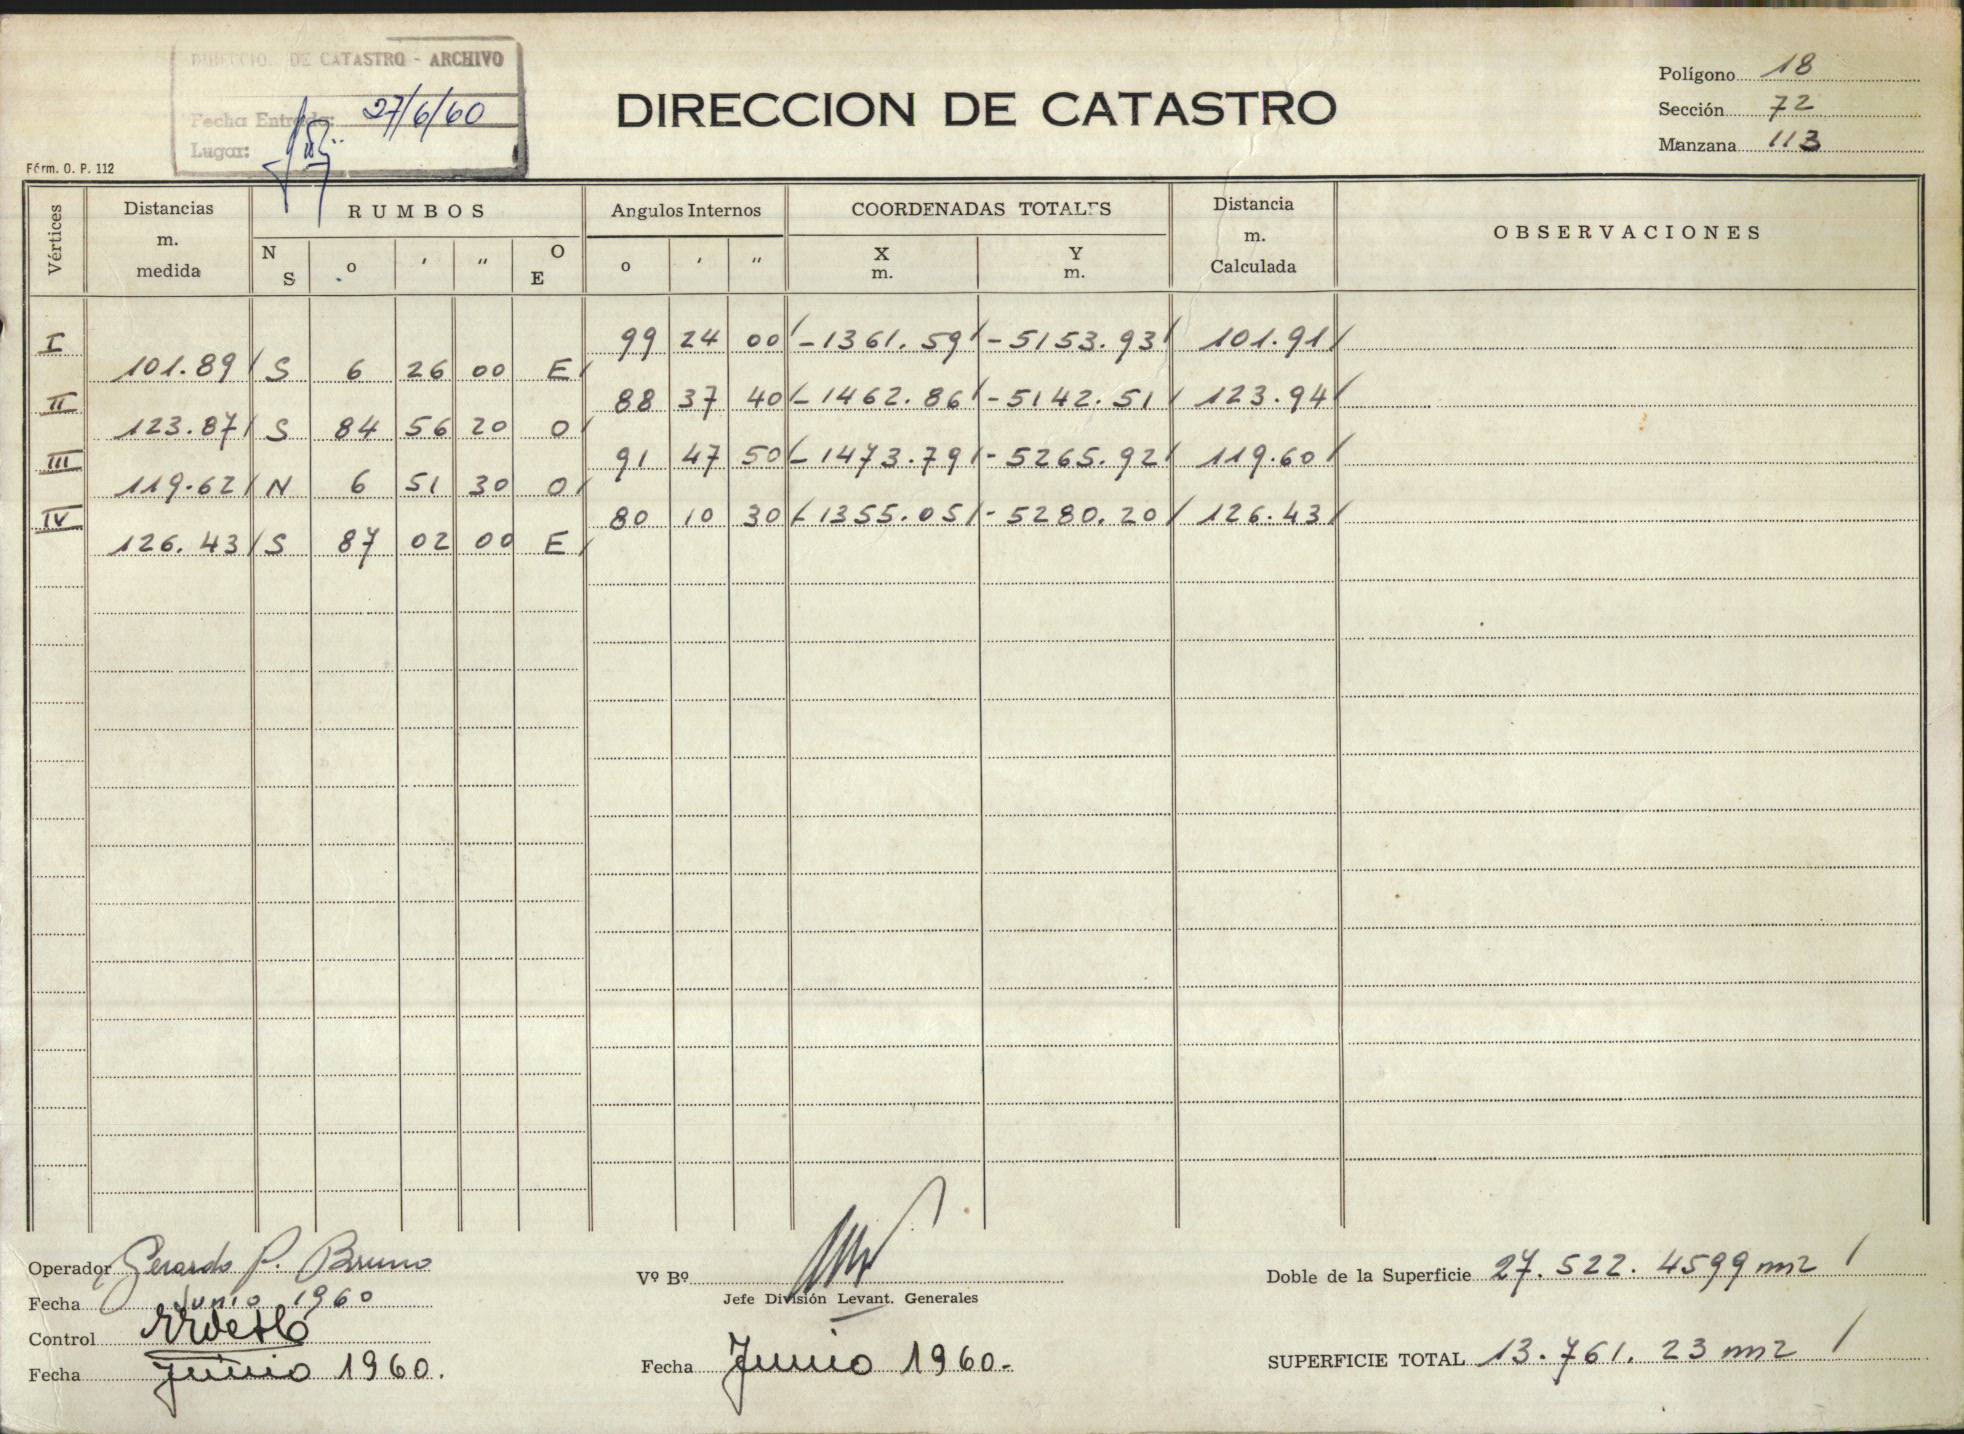 DIRECCIO DE CATASTRO - ARCHIVO
Fecha Entrada: 27/6/60
Lugar:
DIRECCION DE CATASTRO
Polígono 18
Sección 72
Manzana 113
Fórm. O. P. 112
Vértices
Distancias m. medida
RUMBOS
N S o ′ ″ O E
Angulos Internos
o ′ ″
COORDENADAS TOTALES
X m. Y m.
Distancia m. Calculada
OBSERVACIONES
I 99 24 00 -1361.59 -5153.93 101.91
101.89 S 6 26 00 E
II 88 37 40 -1462.86 -5142.51 123.94
123.87 S 84 56 20 O
III 91 47 50 -1473.79 -5265.92 119.60
119.62 N 6 51 30 O
IV 80 10 30 -1355.05 -5280.20 126.43
126.43 S 87 02 00 E
Operador Gerardo P. Bruno
Fecha Junio 1960
Control
Fecha Junio 1960.
Vº Bº
Jefe División Levant. Generales
Fecha Junio 1960.-
Doble de la Superficie 27.522.4599 m2
SUPERFICIE TOTAL 13.761.23 m2